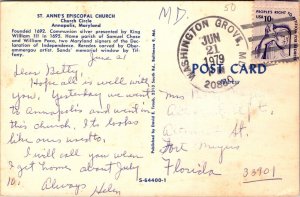 M.D.
50
ST. ANNE'S EPISCOPAL CHURCH
Church Circle
Annapolis, Maryland
Founded 1692. Communion silver presented by King
William III in 1695. Home parish of Samuel Chase
and William Paca, two Maryland signers of the Dec-
laration of Independence. Reredos carved by Ober-
ammergau artist. Sands' memorial window by Tif-
fany.
June 21
Dear Betty,
Hope all is well with
you. Yesterday we went
to Annapolis and went in
this church. It looks
like ours
I will call you when
I get home about July
10.
Always Helen
WASHINGTON GROVE, M
JUN
21
1979
20880
PEOPLE'S RIGHT
US 10c
POST CARD
St.
Fort Myers
Florida
33901
S-64400-1